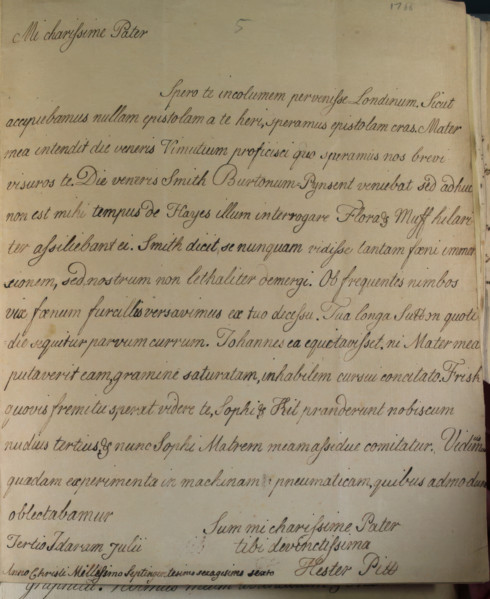 1766
5
Mi charissime Pater
Spero te incolumem pervenisse Londinum. Sicut
accipiebamus nullam epistolam a te heri, speramus epistolam cras. Mater
mea intendit die veneris Vinudium proficisci quo speramus nos brevi
visuros te. Die veneris Smith Burtonum Pynsent veniebat sed adhuc
non est mihi tempus de Hayes illum interrogare Flora & Muff hilari
ter assiliebant ei. Smith dicit, se nunquam vidisse tantam fœni immer
sionem, sed nostrum non lethaliter demergi. Ob frequentes nimbos
vix fœnum furcillis versavimus ex tuo dicessu. Tua longa Sutton quoti
die sequitur parvum currum. Johannes ea equitavisset, ni Mater mea
putaverit eam, gramine saturatam, inhabilem cursu concitato. Frisk
quovis fremitu sperat videre te, Sophi & Kit pranderunt nobiscum
nudius tertius, & nunc Sophi Matrem meam assidue comitatur.
quædam experimenta in machinam pneumaticam, quibus admodum
oblectabamur
Sum mi charissime Pater
tibi devinctissima
Hester Pitt
Tertio Idarum Julii
Anno Christi Millesimo Septingentesimo sexagesimo sexto